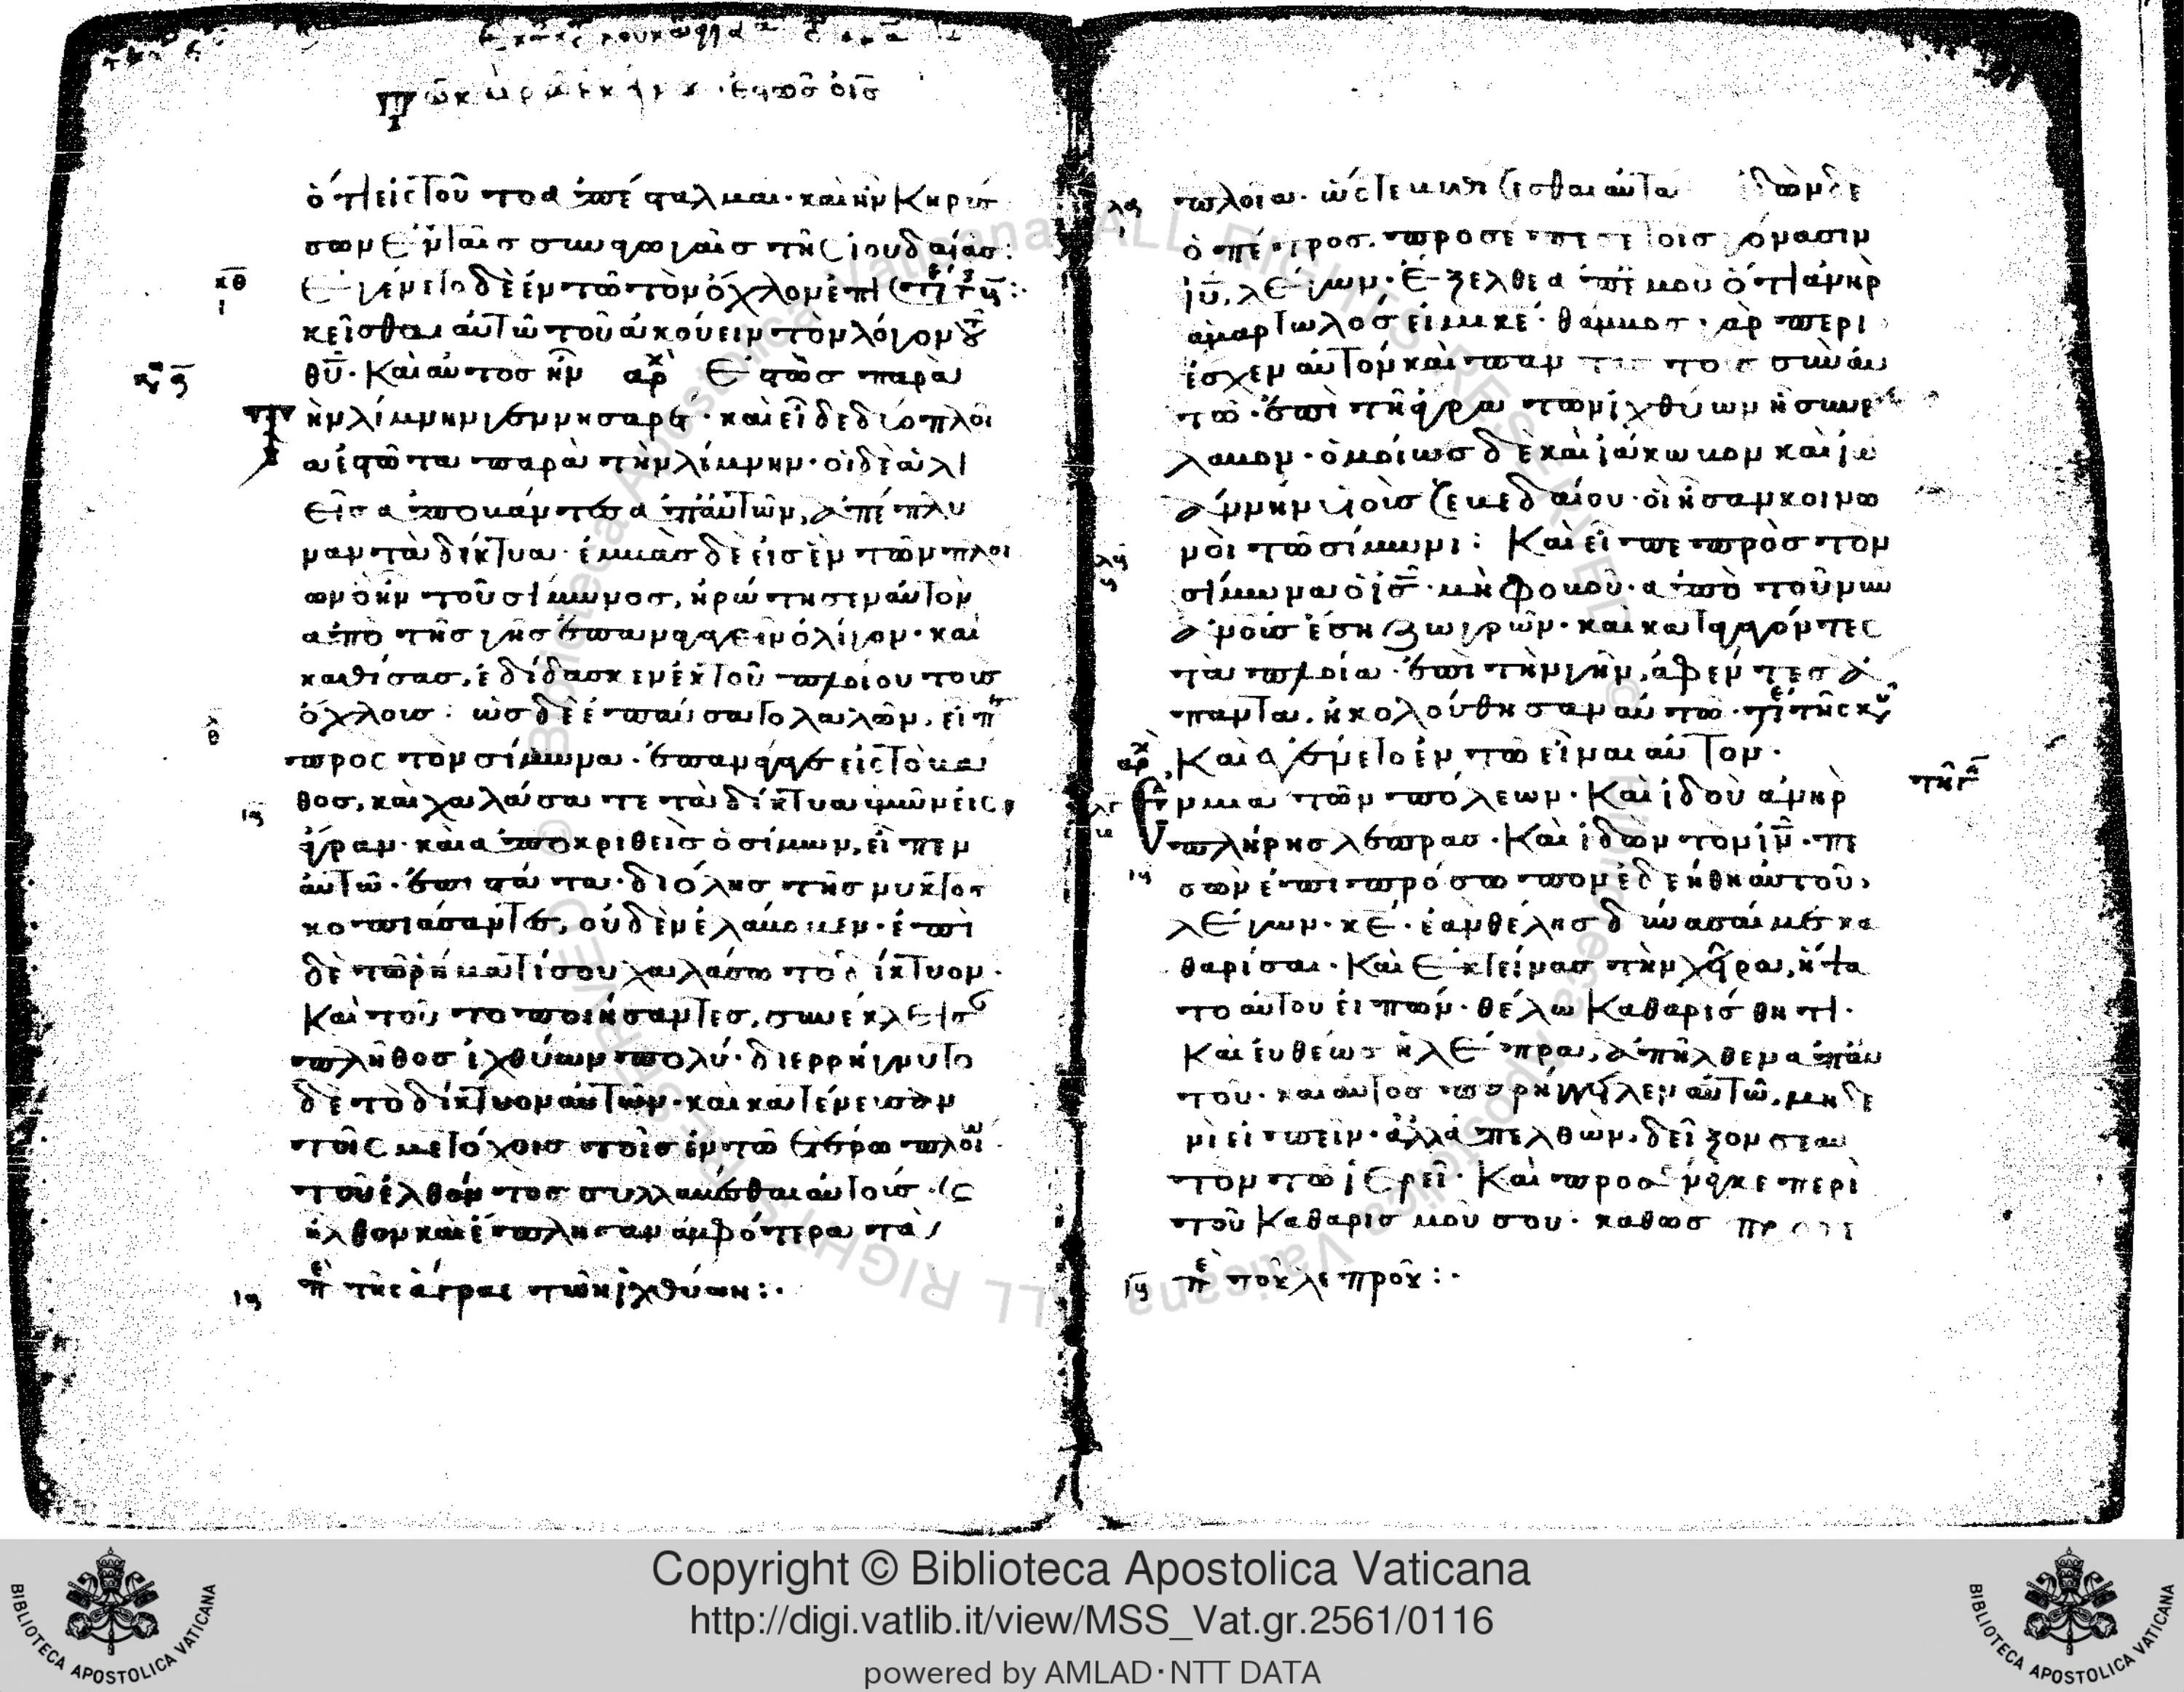 ὅτι εἰς τοῦτο ἀπέσταλμαι· καὶ ἦν κηρύσ
σων ἐν ταῖς συναγωγαῖς τῆς ἰουδαίας:
Ἐγένετο δὲ ἐν τῶ τὸν ὄχλον ἐπι
κεῖσθαι αὐτῶ τοῦ ἀκούειν τὸν λόγον τοῦ
θῦ· Καὶ αὐτος ἦν ἀρχ Ἑστὼς παρὰ
τὴν λίμνην γεννησαρέτ· καὶ εἶδε δύο πλοῖ
α ἑστῶτα παρὰ τὴν λίμνην· οἱ δὲ ἁλι
εῖς ἀποβάντες ἀπ αὐτῶν, ἀπέπλυ
ναν τὰ δίκτυα· ἐμβὰς δὲ εἰς ἓν τῶν πλοί
ων ὃ ἦν τοῦ σίμωνος, ἠρώτησεν αὐτὸν
ἀπὸ τῆς γῆς ἐπαναγαγεῖν ὀλίγον· καὶ
καθίσας, ἐδίδασκεν ἐκ τοῦ πλοίου τοὺς
ὄχλους: ὡς δὲ ἐπαύσατο λαλῶν, εἶπε
προς τὸν σίμωνα· ἐπανάγαγε εἰς τὸ βά
θος, καὶ χαλάσατε τὰ δίκτυα ὑμῶν εἰς
ἄγραν· καὶ ἀποκριθεὶς ὁ σίμων, εἶπεν
αὐτῶ· ἐπιστάτα· δι ὅλης τῆς νυκτὸς
κοπιάσαντες, οὐδὲν ἐλάβομεν· ἐπὶ
δὲ τῶ ῥήματί σου χαλάσω τὸ δίκτυον·
Καὶ τοῦτο ποιήσαντες, συνέκλεισαν
πλῆθος ἰχθύων πολύ· διερρήγνυτο
δὲ τὸ δίκτυον αὐτῶν· καὶ κατένευσαν
τοῖς μετόχοις τοῖς ἐν τῶ ἑτέρω πλοίω
τοῦ ἐλθόντας συλλαβέσθαι αὐτοῖς· καὶ
ἦλθον καὶ ἔπλησαν ἀμφότερα τὰ
πε τῆς ἄγρας τῶν ἰχθύων:·
πλοῖα· ὥστε βυθίζεσθαι αὐτά ἰδὼν δὲ
ὁ πέτρος. προσέπεσε τοῖς γόνασιν
ἰῦ, λέγων· Ἔξελθε ἀπ ἐμοῦ ὅτι ἀνὴρ
ἁμαρτωλός εἰμι κέ· θάμβος γὰρ περι
έσχεν αὐτὸν καὶ πάντας τοὺς σὺν αὐ
τῶ· ἐπὶ τῆ ἄγρα τῶν ἰχθύων ἧ συνέ
λαβον· ὁμοίως δὲ καὶ ἰάκωβον καὶ ἰω
άννην υἱοὺς ζεβεδαίου· οἳ ἦσαν κοινω
νοὶ τῶ σίμωνι: Καὶ εἶπε πρὸς τὸν
σίμωνα ὁ ἰς̄· μὴ φοβοῦ· ἀπὸ τοῦ νῦν
ἀνοὺς ἔση ζωγρῶν· καὶ καταγαγόντες
τὰ πλοῖα ἐπὶ τὴν γῆν, ἀφέντες ἅ
παντα, ἠκολούθησαν αὐτῶ·
ἀρχ Καὶ ἐγένετο ἐν τῶ εἶναι αὐτὸν·
ἐν μιᾶ τῶν πόλεων· Καὶ ἰδοὺ ἀνὴρ
πλήρης λέπρας· Καὶ ἰδὼν τὸν ἰν̄· πε
σὼν ἐπὶ πρόσωπον ἐδεήθη αὐτοῦ
λέγων· κέ· ἐὰν θέλης δύνασαί με κα
θαρίσαι· Καὶ ἐκτείνας τὴν χεῖρα, ἥψα
το αὐτοῦ εἰπών· θέλω Καθαρίσθητι·
Καὶ εὐθέως ἡ λέπρα, ἀπῆλθεν ἀπ αὐ
τοῦ· καὶ αὐτὸς παρήγγειλεν αὐτῶ, μηδε
νὶ εἰπεῖν· ἀλλὰ ἀπελθὼν, δεῖξον σεαυ
τὸν τῶ ἱερεῖ· Καὶ προσένεγκε περὶ
τοῦ Καθαρισμοῦ σου· καθὼς προσέ
πε τοῦ λεπροῦ:·
Copyright © Biblioteca Apostolica Vaticana
http://digi.vatlib.it/view/MSS_Vat.gr.2561/0116
powered by AMLAD·NTT DATA
BIBLIOTECA APOSTOLICA VATICANA
BIBLIOTECA APOSTOLICA VATICANA